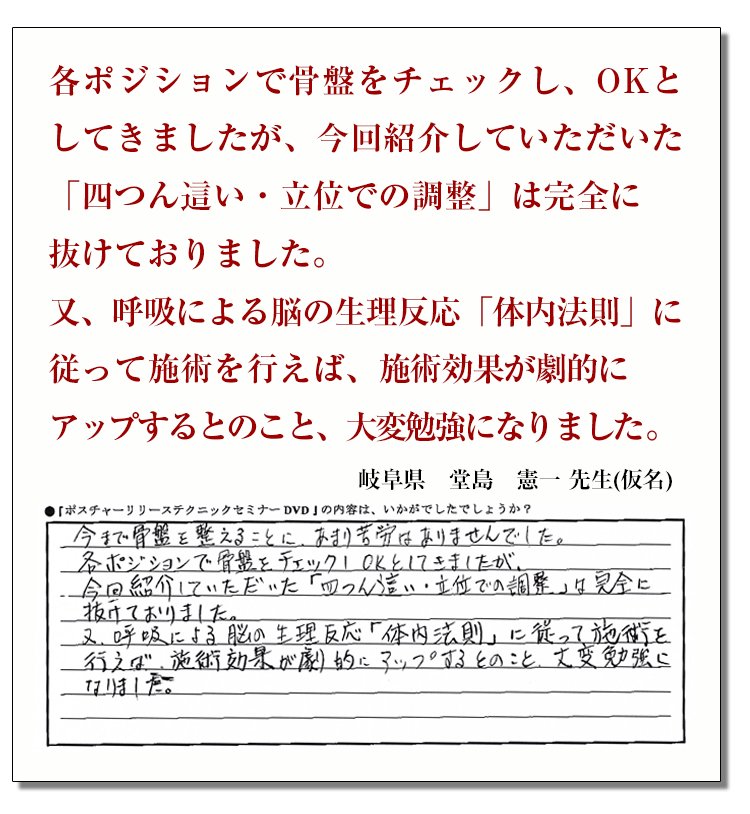 各ポジションで骨盤をチェックし、OKと
してきましたが、今回紹介していただいた
「四つん這い・立位での調整」は完全に
抜けておりました。
又、呼吸による脳の生理反応「体内法則」に
従って施術を行えば、施術効果が劇的に
アップするとのこと、大変勉強になりました。
岐阜県　堂島　憲一 先生(仮名)
●「ポスチャーリリーステクニックセミナーDVD」の内容は、いかがでしたでしょうか？
今まで骨盤を整えることに、あまり苦労はありませんでした。
各ポジションで骨盤をチェックしOKとしてきましたが、
今回紹介していただいた「四つん這い・立位での調整」は完全に
抜けておりました。
又、呼吸による脳の生理反応「体内法則」に従って施術を
行えば、施術効果が劇的にアップするとのこと、大変勉強に
なりました。